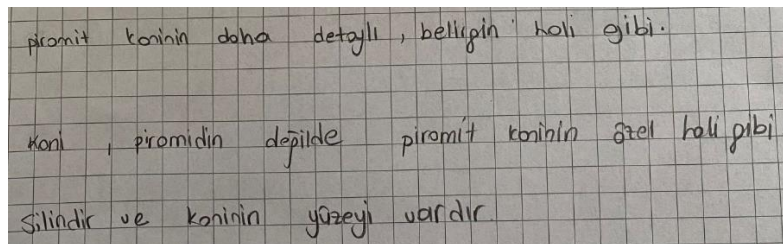 piramit koninin daha detaylı, belirgin hali gibi.
Koni, piramidin değilde piramit koninin özel hali gibi
Silindir ve koninin yüzeyi vardır.